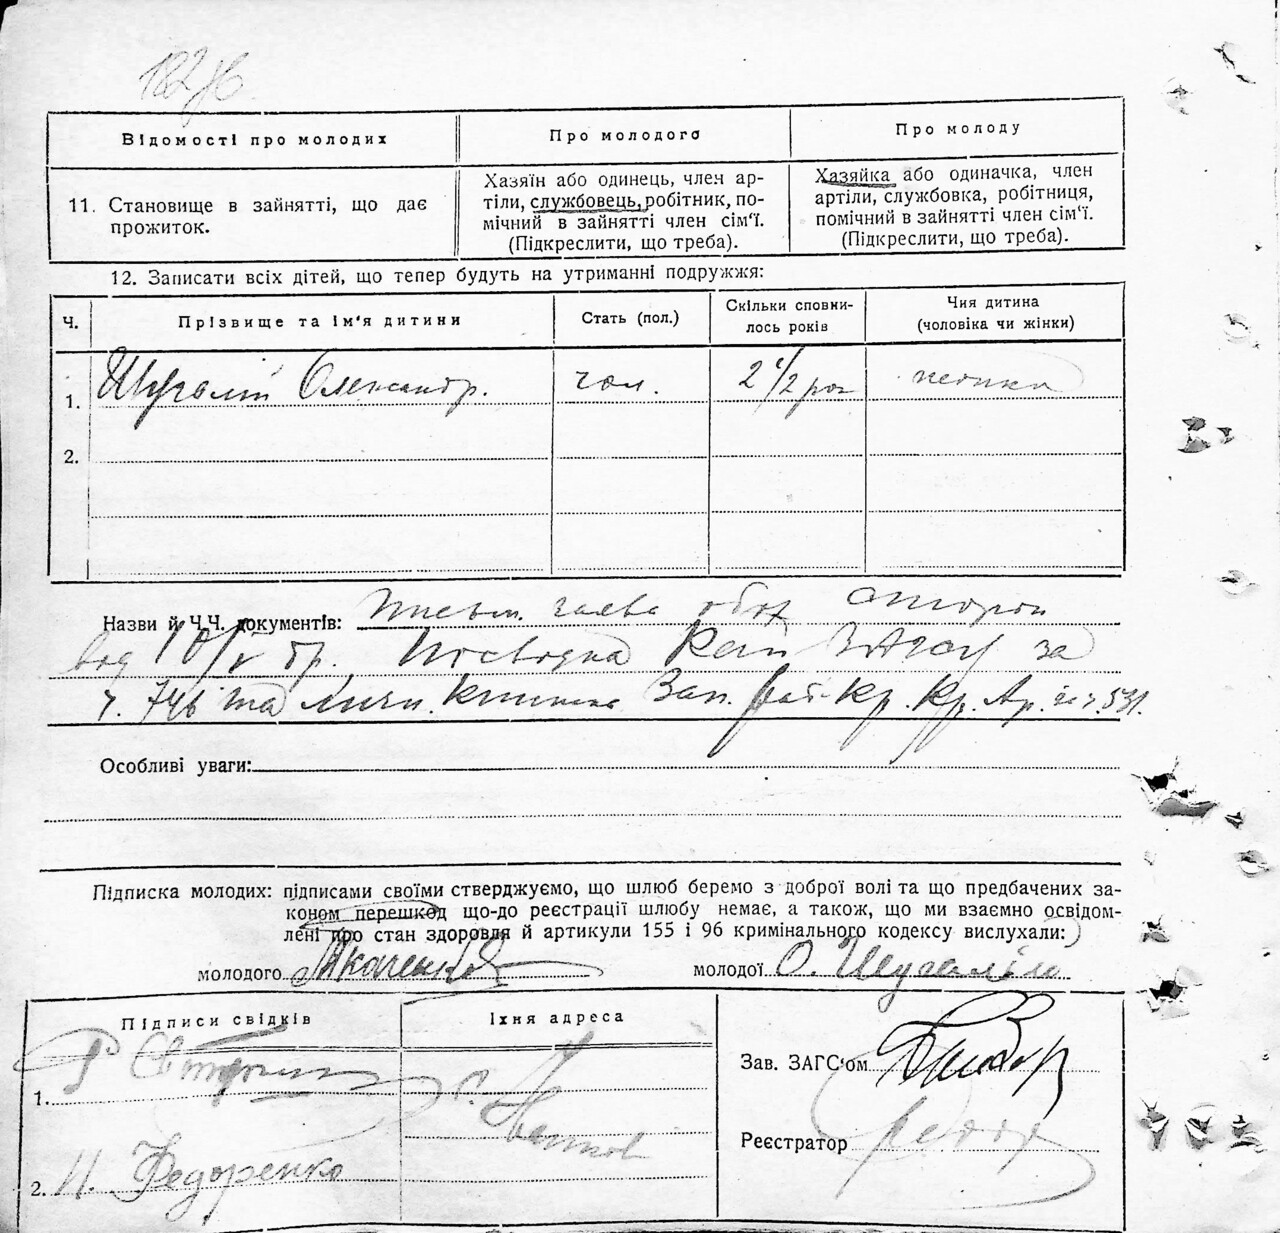 Відомості про молодих
Про молодого
Про молоду
11. Становище в зайнятті, що дає
прожиток.
Хазяїн або одинець, член ар-
тіли, службовець, робітник, по-
мічний в зайнятті член сім'ї.
(Підкреслити, що треба).
Хазяйка або одиначка, член
артіли, службовка, робітниця,
помічний в зайнятті член сім'ї.
(Підкреслити, що треба).
12. Записати всіх дітей, що тепер будуть на утриманні подружжя:
Ч.
Прізвище та ім'я дитини
Стать (пол.)
Скільки сповни-
лось років
Чия дитина
(чоловіка чи жінки)
1. Шугалій Олександр. чол. 2 1/2 рок
2.
Назви й Ч.Ч. документів: письм. заява обох сторон
від 10/V бр. Посводка Рай ЗАГСу за
ч. 746 та Кр. Кр. Ар.
Особливі уваги:
Підписка молодих: підписами своїми стверджуємо, що шлюб беремо з доброї волі та що предбачених за-
коном перешкод що-до реєстрації шлюбу немає, а також, що ми взаємно освідом-
лені про стан здоровля й артикули 155 і 96 кримінального кодексу вислухали:
молодого Ткаченко
молодої О. Шугалій
Підписи свідків
Їхня адреса
1.
2. Н. Федоренко
Зав. ЗАГС'ом
Реєстратор